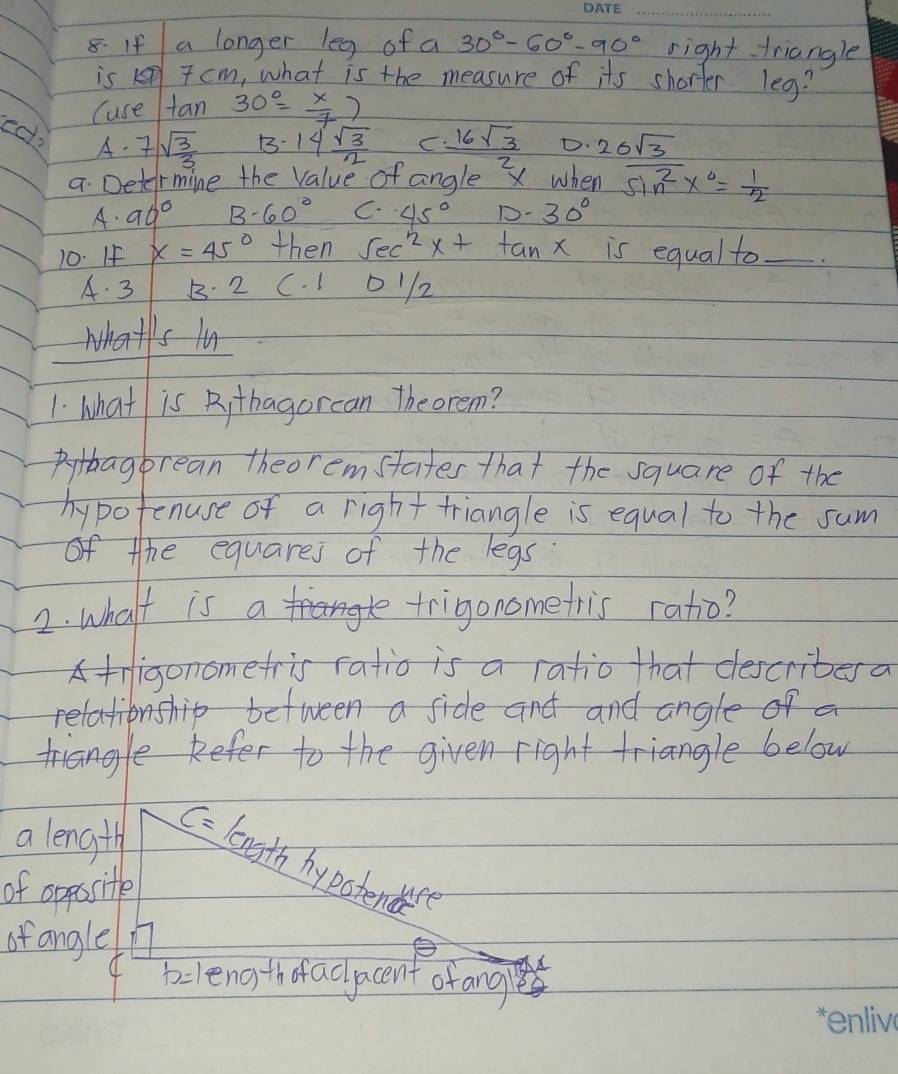 DATE
8. If a longer leg of a 30°-60°-90° right triangle
is 7cm, what is the measure of its shorter leg?
(use tan 30° = x/7)
A. 7√3/3 B. 14√3/2 C. 16√3/2 D. 26√3/2
9. Determine the value of angle x when sin² x° = 1/2
A. 90° B. 60° C. 45° D. 30°
10. If x = 45° then sec² x + tan x is equal to ___.
A. 3 B. 2 C. 1 D 1/2
What's In
1. What is Pythagorean Theorem?
Pythagorean theorem states that the square of the
hypotenuse of a right triangle is equal to the sum
of the equares of the legs.
2. What is a triangle trigonometris ratio?
A trigonometris ratio is a ratio that describes a
relationship between a side and and angle of a
triangle Refer to the given right triangle below
a length
of opposite
of angle
C = length hypotenuse
θ
C
b = length of adjacent of angle
*enliv